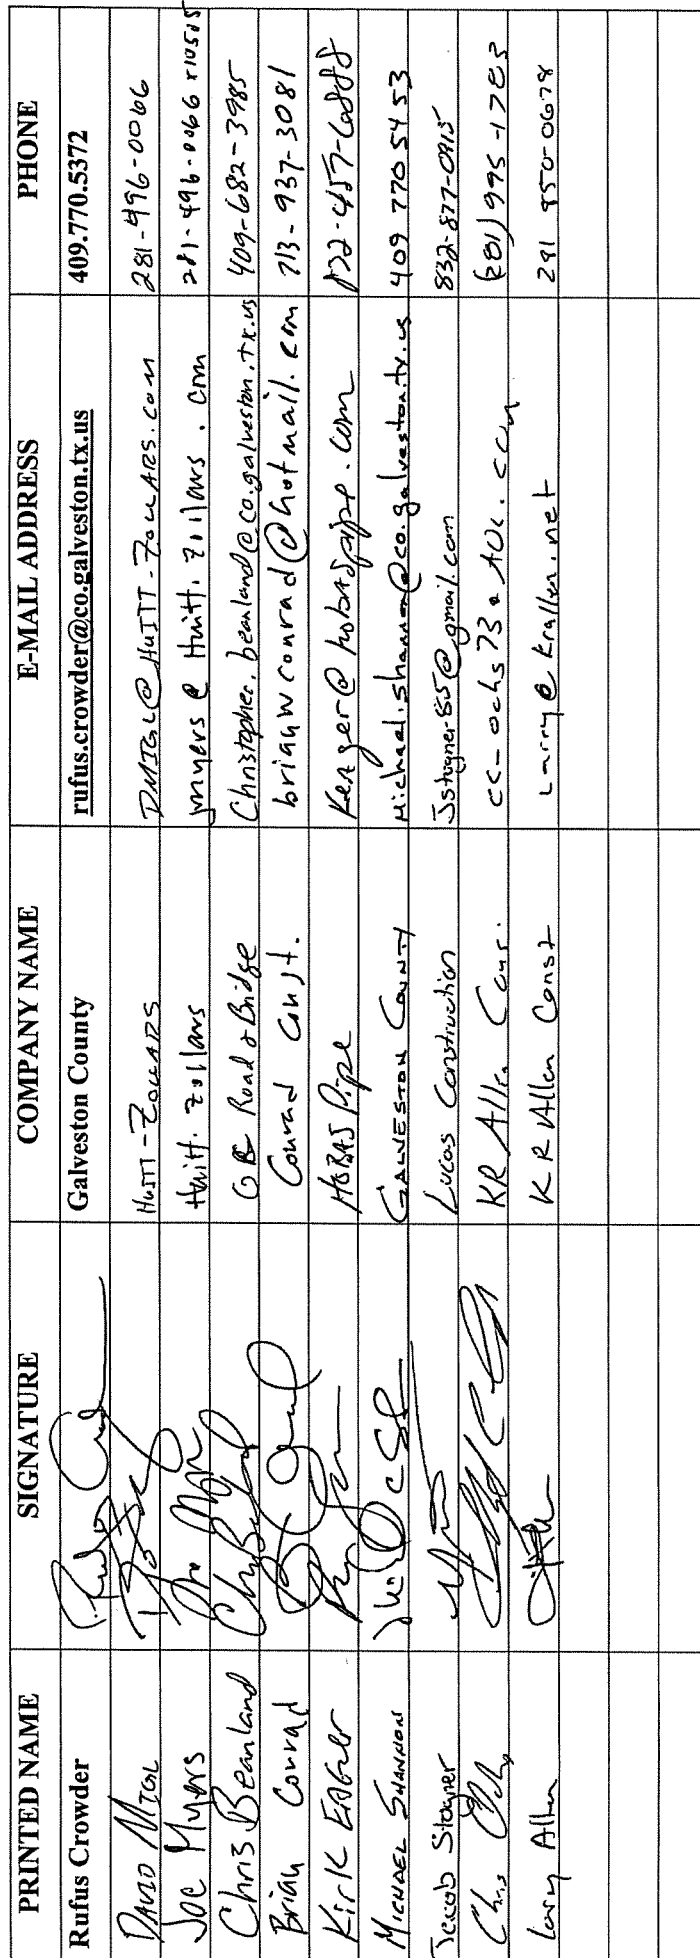 PRINTED NAME SIGNATURE COMPANY NAME E-MAIL ADDRESS PHONE
Rufus Crowder Galveston County rufus.crowder@co.galveston.tx.us 409.770.5372
DAVID MIGL HUITT-ZOLLARS DMIGL@HUITT-ZOLLARS.COM 281-496-0066
Joe Myers Huitt. Zollars jmyers@Huitt.Zollars.com 281-496-0066 x10515
Chris Beanland GC Road & Bridge Christopher.beanland@co.galveston.tx.us 409-682-3985
Brian Conrad Conrad Const. brianwconrad@hotmail.com 713-937-3081
Kirk EAGER HOBAS Pipe Keager@hobaspipe.com
MICHAEL SHANNON GALVESTON COUNTY Michael.shannon@co.galveston.tx.us 409 770 5453
Jacob Stagner Lucas Construction 832-877-0915
Chris Ochs KR Allen Cons.
Larry Allen KR Allen Const Larry@krallen.net